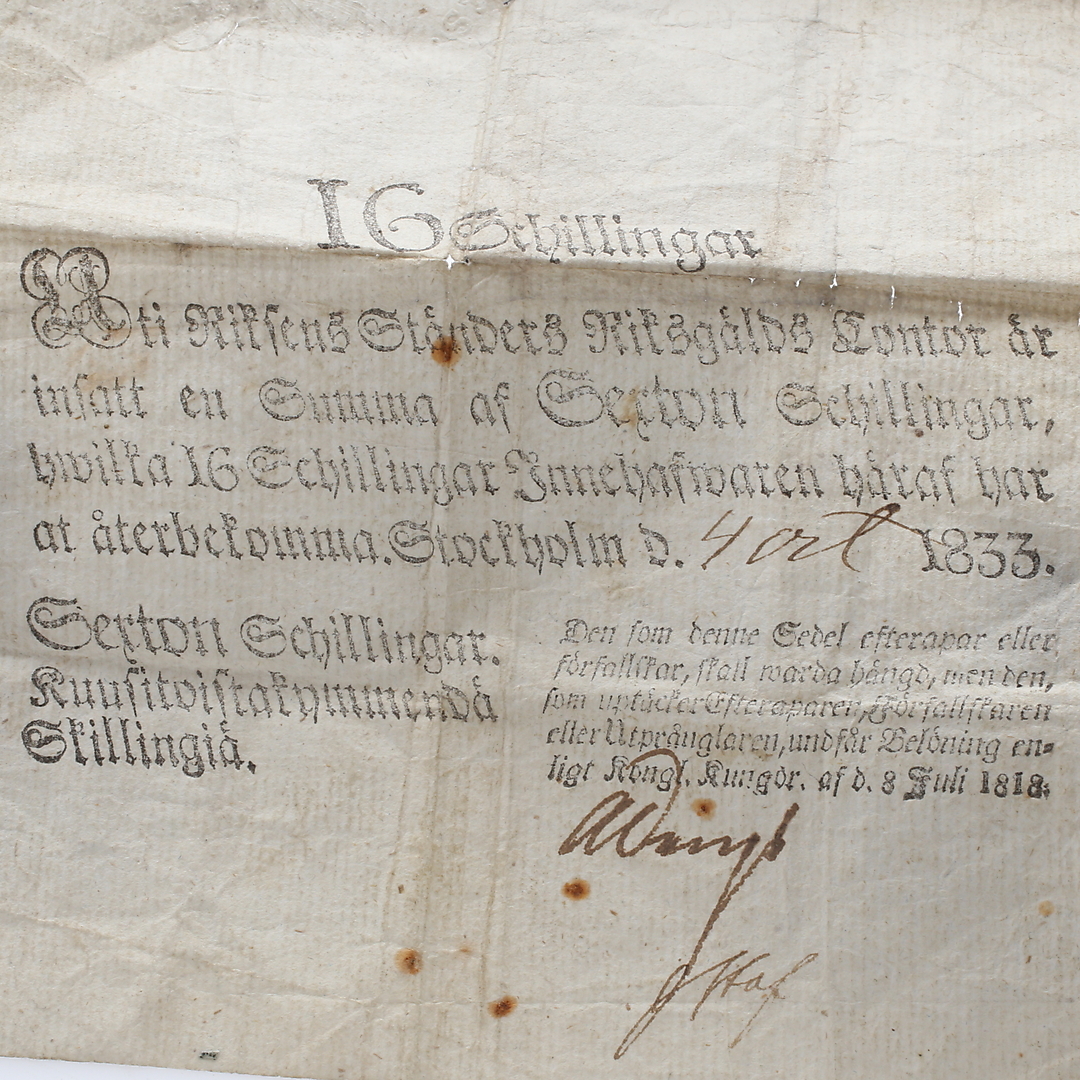 16 Schillingar
Uti Riksens Ständers Riksgälds Contor är
insatt en Summa af Sexton Schillingar,
hwilka 16 Schillingar Innehafwaren häraf har
at återbekomma. Stockholm d. 4 oct 1833.
Sexton Schillingar.
Kuusitoistakymmendä
Skillingiä.
Den som denne Sedel efterapar eller
förfallskar, skall warda hängd, men den,
som uptäcker Efteraparen, Förfallskaren
eller Utprånglaren, undfår Belöning en-
ligt Kongl. Kungör. af d. 8 Juli 1818.